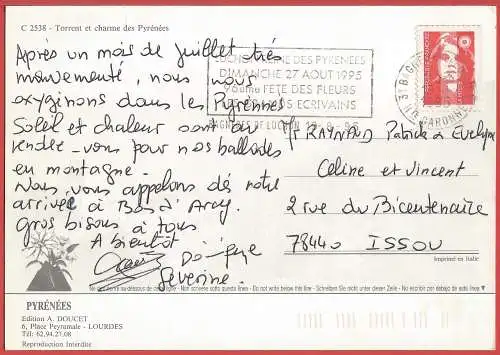 C 2538 - Torrent et charme des Pyrénées
Après un mois de juillet très
mouvementé, nous nous
oxyginons dans les Pyrénnées
Soleil et chaleur sont au
rendez-vous pour nos ballades
en montagne.
Nous vous appelons dès notre
arrivée à Bois d'Arcy.
Gros bisous à tous
A bientôt
Séverine.
LUCHON REINE DES PYRENEES
DIMANCHE 27 AOUT 1995
96ème FETE DES FLEURS
DES ECRIVAINS
BAGNERES DE LUCHON
Mr RAYNAUD Patrick et Evelyne
Céline et Vincent
2 rue du Bicentenaire
78440 ISSOU
Imprimé en Italie
Ne rien écrire au-dessous de cette ligne - Non scrivere sotto questa linea - Do not write below this line - Schreiben Sie nicht unter diesen Zeilen - No escribir por debajo de esta linea
PYRÉNÉES
Edition A. DOUCET
6, Place Peyramale - LOURDES
Tél: 62.94.27.08
Reproduction Interdite